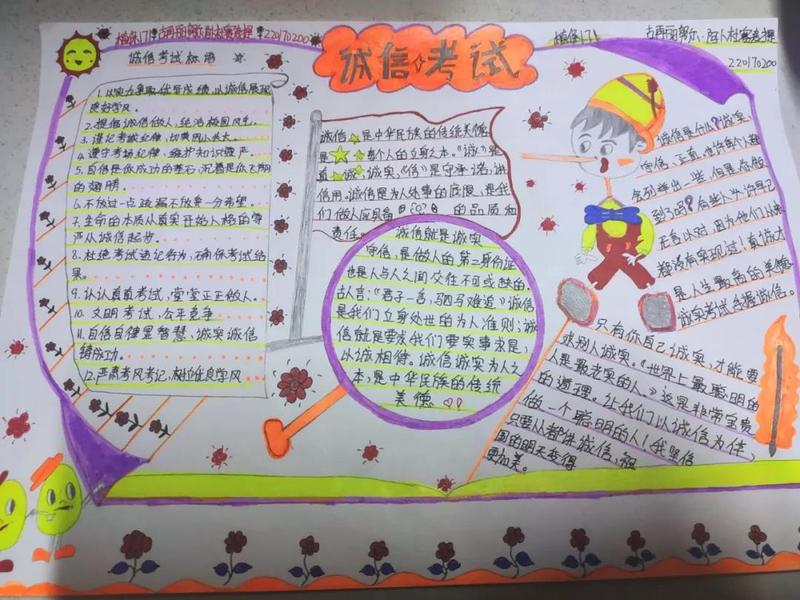 植保171
220170200
植保171
220170200
诚信考试
诚信考试标语
1.以实力争取优异成绩,以诚信展现
良好学风。
2.提倡诚信做人,纯洁校园风气。
3.谨记考试纪律,切莫因小失大。
4.遵守考场纪律,维护知识尊严。
5.自信是你成功的基石,沉着是你飞翔
的翅膀。
6.不放过一点疏漏不放弃一分希望。
7.生命的本质从真实开始人格的尊
严从诚信起步。
8.杜绝考试违纪名为,确保考试结
果。
9.认认真真考试,堂堂正正做人。
10.文明考试,公平竞争
11.自信自律显智慧,诚实诚信
铸成功。
12.严肃考风考纪,树立良学风
诚信,是中华民族的传统美德
是 每个人的立身之本。《诚》是
真 诚,诚实,《信》是守承诺,讲
信用。诚信是为人处事的底限,是我
们做人应具备 的品质和
责任。
诚信就是诚实
守信,是做人的第一身份证
也是人与人之间交往不可或缺的。
古人言:《君子一言,驷马难追》诚信
是我们立身处世的为人准则;诚
信就是要我们要实事求是,
以诚相待。诚信诚实为人之
本,是中华民族的传统
美德
诚信是什么?诚实,
守信,正直,也许每个人都
会列举出一些,但是你做
到了吗?有些人以许自己
无言以对,因为我们从来
都没有实现过!真诚才
是人生最高的美德
诚实考试
只有你自己诚实,才能要
求别人诚实。《世界上最聪明的
人是最老实的人。》这是非常宝贵
的道理。让我们以诚信为伴,
做一个聪明的人!我坚信
只要人都讲诚信,
国的明天变得
更加美。